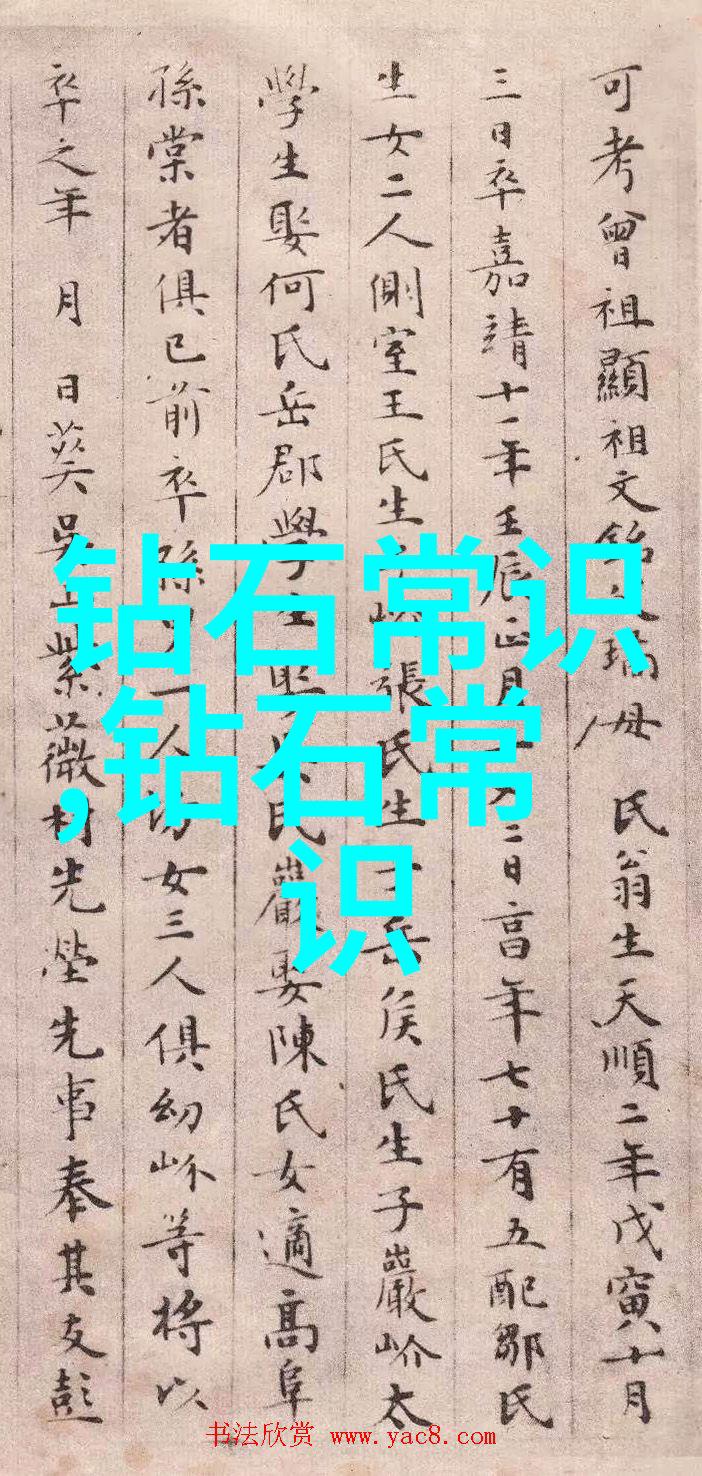 可考曾祖顯祖文銘父瑀母 氏翁生天順二年戊寅十月
三日卒嘉靖十一年壬辰正月二日高年七十有五配鄒氏
生女二人側室王氏生子 張氏生 岳侯氏生子巖岎太
學生娶何氏岳郡學生娶 氏巖娶陳氏女適高阜
孫棠者俱已前卒孫 一人 女三人俱幼岎等將以
卒之年 月 日葬吳 紫薇村先塋先事奉其友彭
钻石常识
,钻石常
识
书法欣赏 www.yac8.com